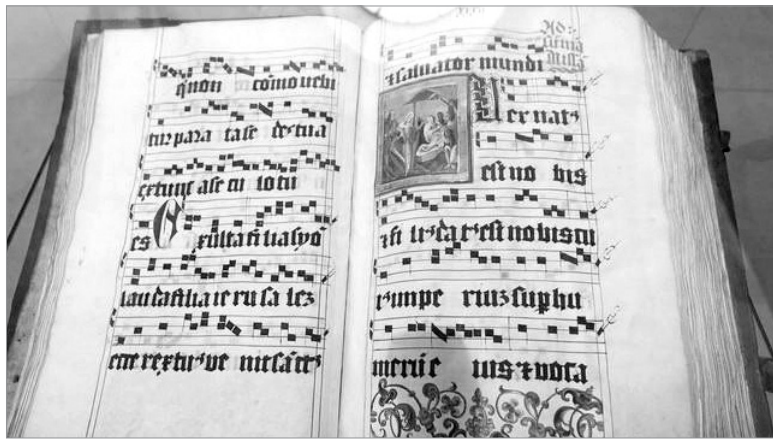 quon cōmouebi
tur para ta se des tua
ex tunc a se cu lo tu
es Exulta fi lia syō
lau da fi lia ie ru sa lez
ecce rex tuus ve nit sāctꝰ
Ad
Missā
saluator mundi
Puer natꝰ
est no bis
et fi li us da tus est nobis cu
ius impe rium sup hu
merū e ius et voca